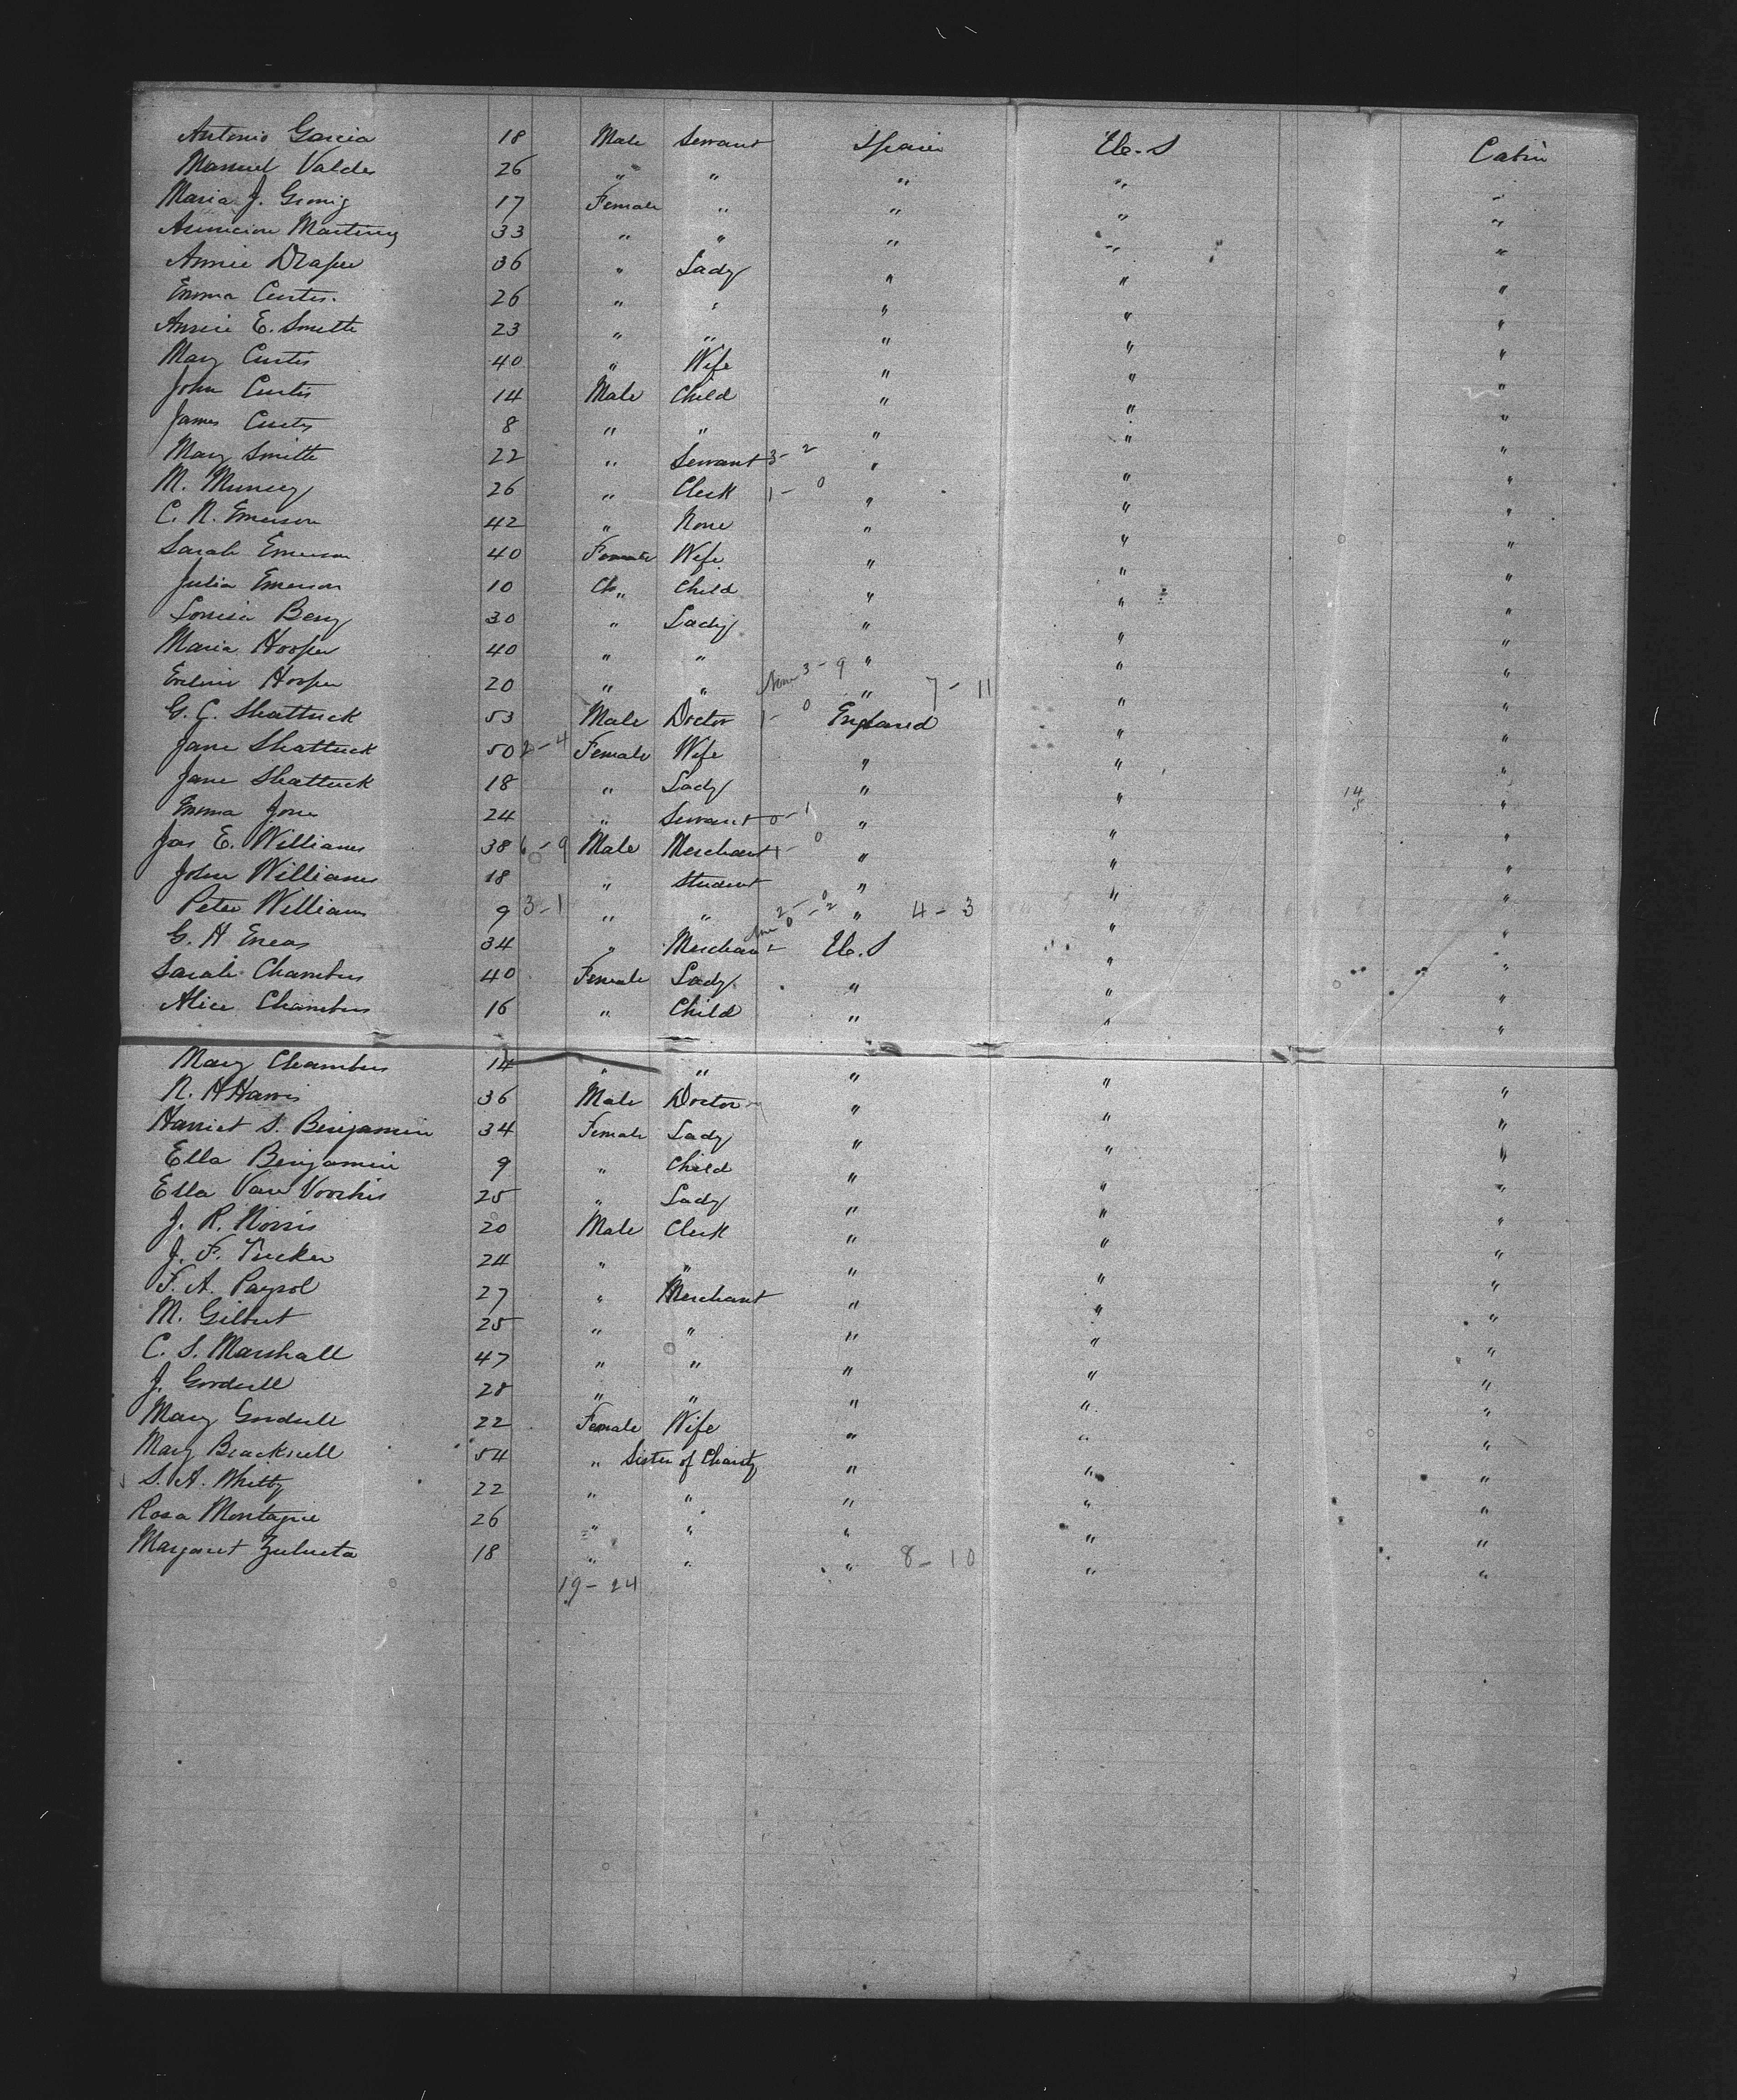 Antonio Garcia 18 Male Servant Spain U.S Cabin
Manuel Valdes 26 " " " " "
Maria J. 17 Female " " " "
Asuncion 33 " " " " "
Annie Draper 36 " Lady " " "
Emma Curtis. 26 " " " " "
Annie E. Smith 23 " " " " "
Mary Curtis 40 " Wife " " "
John Curtis 14 Male Child " " "
James Curtis 8 " " " " "
Mary Smith 22 " Servant 3-2 " " "
M. 26 " Clerk 1-0 " " "
C. N. Emerson 42 " None " " "
Sarah Emerson 40 Female Wife " " "
Julia Emerson 10 Ch " Child " " "
Louisa Berry 30 " Lady " " "
Maria Hooper 40 " " " " "
Hooper 20 " " 3-9 " 7-11 " "
G. C. Shattuck 53 Male Doctor 1-0 England " "
Jane Shattuck 50 2-4 Female Wife " " "
Jane Shattuck 18 " Lady " " "
Emma Jones 24 " Servant 0-1 " " "
Jas E. Williams 38 6-9 Male Merchant 1-0 " " "
John Williams 18 " Student " " "
Peter Williams 9 3-1 " " 2-0 0-2 " 4-3 " "
G. H Eneas 34 " Merchant U.S " "
Sarah Chambers 40 Female Lady " " "
Alice Chambers 16 " Child " " "
Mary Chambers 14 " " " " "
N. H Harris 36 Male Doctor " " "
Harriet S. Benjamin 34 Female Lady " " "
Ella Benjamin 9 " Child " " "
Ella Van Voorhis 25 " Lady " " "
J. R. Norris 20 Male Clerk " " "
J. F. Tucker 24 " " " " "
F. A. Paysol 27 " Merchant " " "
M. Gilbert 25 " " " " "
C. S. Marshall 47 " " " " "
J. Goodsell 28 " " " " "
Mary Goodsell 22 Female Wife " " "
Mary Bracknell 54 " Sister of Charity " " "
S. A. Whitty 22 " " " " "
Rosa Montague 26 " " " " "
Margaret Zulueta 18 " " " 8-10 " "
19-24